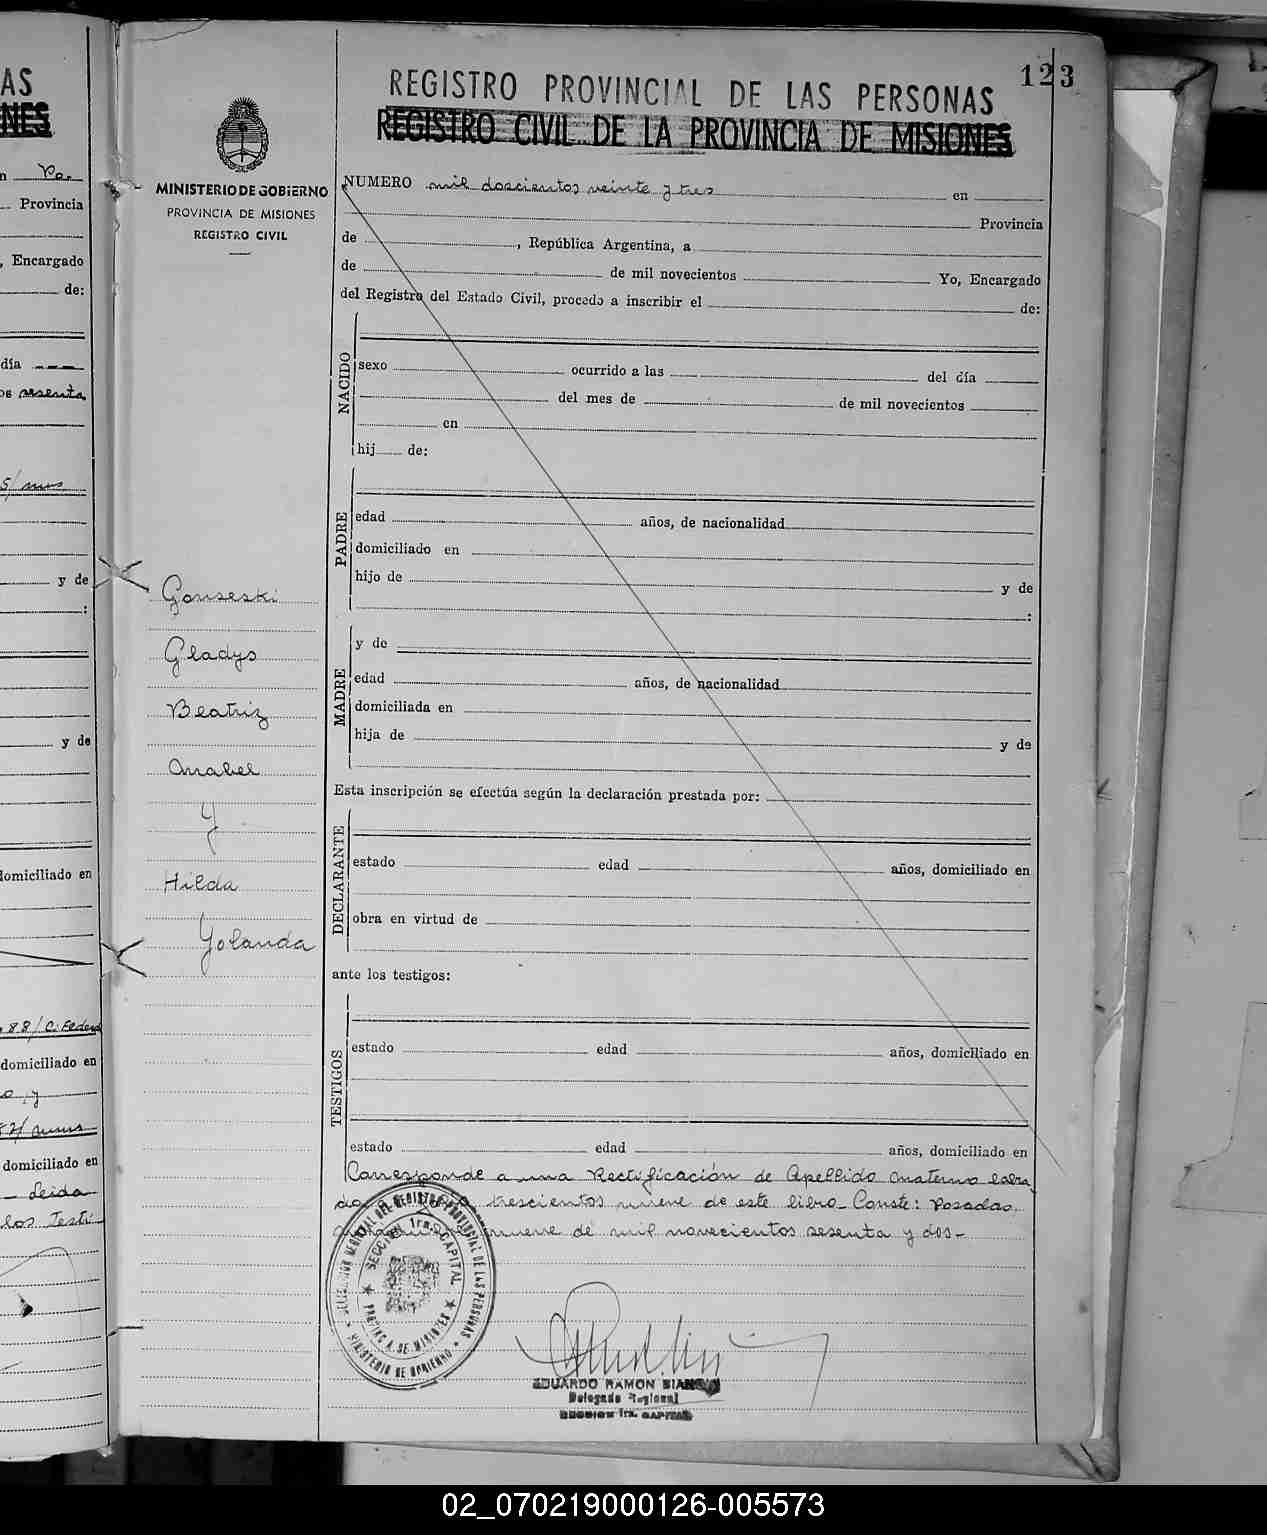 AS
NES
n
Provincia
, Encargado
de:
día
os sesenta
y de
:
y de
domiciliado en
88/ C. Federa
domiciliado en
domiciliado en
Leida
los Testi
123
REGISTRO PROVINCIAL DE LAS PERSONAS
REGISTRO CIVIL DE LA PROVINCIA DE MISIONES
MINISTERIO DE GOBIERNO
PROVINCIA DE MISIONES
REGISTRO CIVIL
Gonseski
Gladys
Beatriz
Anabel
Y
Hilda
Yolanda
NUMERO mil doscientos veinte y tres en
Provincia
de , República Argentina, a
de de mil novecientos Yo, Encargado
del Registro del Estado Civil, procedo a inscribir el de:
NACIDO
sexo ocurrido a las del día
del mes de de mil novecientos
en
hij de:
PADRE
edad años, de nacionalidad
domiciliado en
hijo de y de
:
MADRE
y de
edad años, de nacionalidad
domiciliada en
hija de y de
Esta inscripción se efectúa según la declaración prestada por:
DECLARANTE
estado edad años, domiciliado en
obra en virtud de
ante los testigos:
TESTIGOS
estado edad años, domiciliado en
estado edad años, domiciliado en
Corresponde a una Rectificación de Apellido materno labra
da trescientos nueve de este libro_ Conste: Posadas,
nueve de mil novecientos sesenta y dos-
DELEGACION REGIONAL DEL REGISTRO PROVINCIAL DE LAS PERSONAS
MINISTERIO DE GOBIERNO
SECCION 1ra. CAPITAL
PROVINCIA DE MISIONES
EDUARDO RAMON
Delegado Regional
SECCION 1ra. CAPITAL
02_070219000126-005573